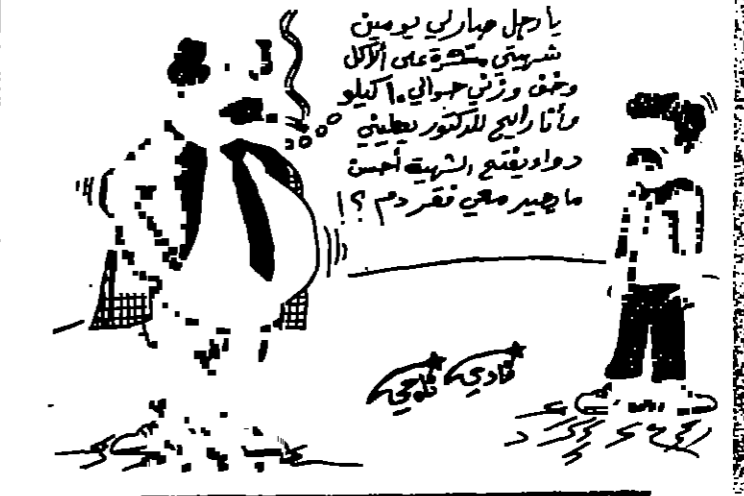 يا رجل صارلي يومين
شهيتي مسكرة على الأكل
وخف وزني حوالي ١٠ كيلو
وأنا رايح للدكتور يعطيني
دواء يفتح الشهية أحسن
ما يصير معي فقر دم ؟!
فادي